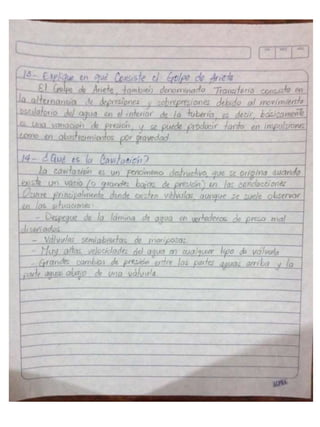 13.- Explique en qué Consiste el Golpe de Ariete
El Golpe de Ariete, también denominado Transitorio consiste en
la alternancia de depresiones y sobrepresiones debido al movimiento
oscilatorio del agua en el interior de la tubería, es decir, básicamente
es una variación de presión, y se puede producir tanto en impulsiones
como en abastecimientos por gravedad.
14.- ¿Qué es la Cavitación?
La cavitación es un fenómeno destructivo, que se origina cuando
existe un vacío (o grandes bajas de presión) en las conducciones
Ocurre principalmente donde existen válvulas, aunque se suele observar
en las situaciones:
- Despegue de la lámina de agua en vertederos de presa mal
diseñados
- Válvulas semiabiertas de mariposas.
- Muy altas velocidades del agua en cualquier tipo de válvula
- Grandes cambios de presión entre las partes aguas arriba y la
parte aguas abajo de una válvula.